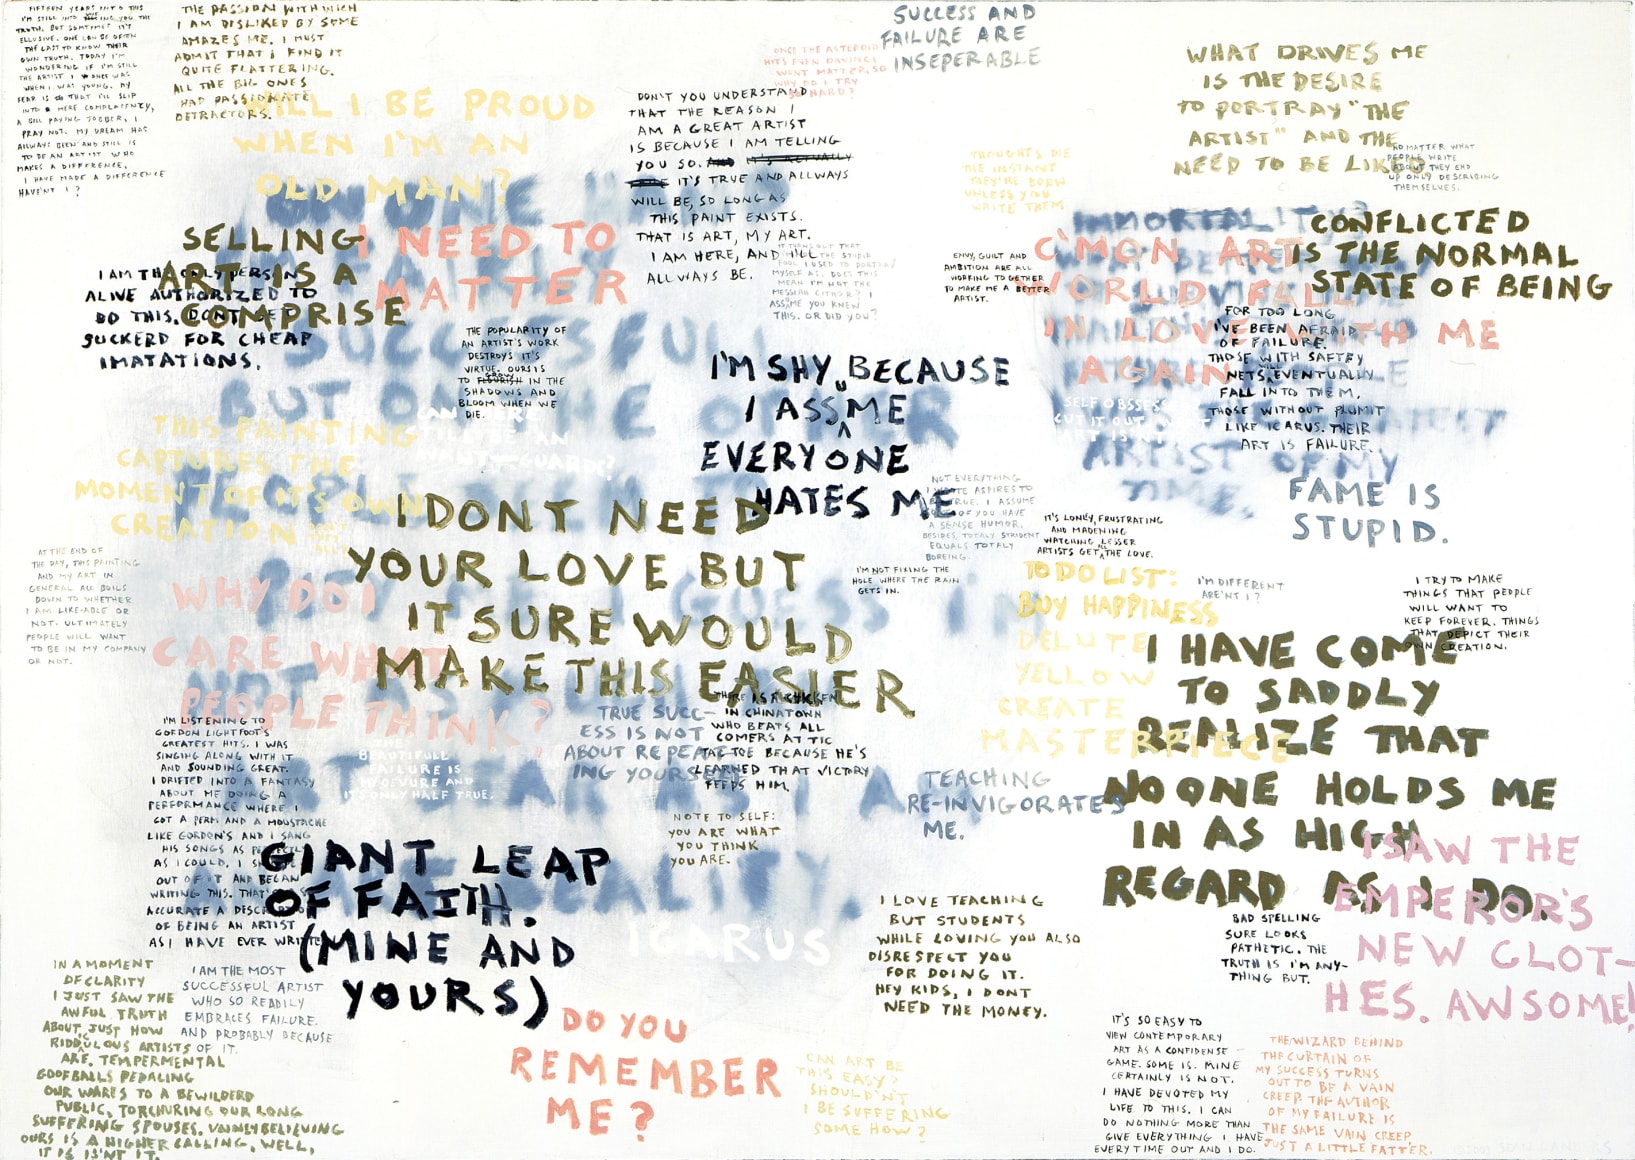 FIFTEEN YEARS INTO THIS
I'M STILL INTO TELLING YOU THE
TRUTH. BUT SOMETIMES IT'S
ELLUSIVE. ONE CAN BE OFTEN
THE LAST TO KNOW THEIR
OWN TRUTH. TODAY I'M
WONDERING IF I'M STILL
THE ARTIST I ONCE WAS
WHEN I WAS YOUNG. MY
FEAR IS THAT I'LL SLIP
INTO A MERE COMPLACENTCY,
A BILL PAYING JOBBER, I
PRAY NOT. MY DREAM HAS
ALLWAYS BEEN AND STILL IS
TO BE AN ARTIST WHO
MAKES A DIFFERENCE,
I HAVE MADE A DIFFERENCE
HAVEN'T I?
THE PASSION WITH WHICH
I AM DISLIKED BY SOME
AMAZES ME. I MUST
ADMIT THAT I FIND IT
QUITE FLATTERING.
ALL THE BIG ONES
HAD PASSIONATE
DETRACTORS.
WILL I BE PROUD
WHEN I'M AN
OLD MAN?
SUCCESS AND
FAILURE ARE
INSEPERABLE
ONCE THE ASTEROID
HITS EVEN DAVINCI
WON'T MATTER, SO
WHY DO I TRY
SO HARD?
DON'T YOU UNDERSTAND
THAT THE REASON I
AM A GREAT ARTIST
IS BECAUSE I AM TELLING
YOU SO.
IT'S TRUE AND ALLWAYS
WILL BE, SO LONG AS
THIS PAINT EXISTS.
THAT IS ART, MY ART.
I AM HERE, AND I'LL
ALLWAYS BE.
WHAT DRIVES ME
IS THE DESIRE
TO PORTRAY "THE
ARTIST" AND THE
NEED TO BE LIKED
NO MATTER WHAT
PEOPLE WRITE
ABOUT THEY END
UP ONLY DESCRIBING
THEMSELVES.
THOUGHTS DIE
THE INSTANT
THEY'RE BORN
UNLESS YOU
WRITE THEM
SELLING
ART IS A
COMPRISE
I NEED TO
MATTER
I AM THE ONLY PERSON
ALIVE AUTHORIZED TO
DO THIS. DON'T GET
SUCKERD FOR CHEAP
IMATATIONS.
NO ONE IS
SUCCESSFUL
BUT
IT TURNS OUT THAT
THE STUPID
FOOL I USED TO PORTRAY
MYSELF AS. DOES THIS
MEAN I'M NOT THE
MESSIAH EITHOR? I
ASSUME YOU KNEW
THIS. OR DID YOU?
ENVY, GUILT AND
AMBITION ARE ALL
WORKING TOGETHER
TO MAKE ME A BETTER
ARTIST.
IMMORTALITY
C'MON ART
WORLD FALL
IN LOVE WITH ME
AGAIN
ARTIST OF MY
TIME.
CONFLICTED
IS THE NORMAL
STATE OF BEING
FOR TOO LONG
I'VE BEEN AFRAID
OF FAILURE.
THOSE WITH SAFTEY
NETS WILL EVENTUALLY
FALL INTO THEM,
THOSE WITHOUT PLUMIT
LIKE ICARUS. THEIR
ART IS FAILURE.
SELF OBSSES
CUT IT OUT
THE POPULARITY OF
AN ARTIST'S WORK
DESTROYS IT'S
VIRTUE. OURS IS
TO GROW IN THE
SHADOWS AND
BLOOM WHEN WE
DIE.
I'M SHY BECAUSE
I ASSUME
EVERYONE
HATES ME
THIS PAINTING
CAPTURES THE
MOMENT OF IT'S OWN
CREATION
NOT EVERYTHING
I WRITE ASPIRES TO
BE TRUE. I ASSUME
SOME OF YOU HAVE
A SENSE HUMOR.
BESIDES, TOTALY STRIDENT
EQUALS TOTALY
BOREING.
FAME IS
STUPID.
IT'S LONELY, FRUSTRATING
AND MADENING
WATCHING LESSER
ARTISTS GET ALL THE LOVE.
I DONT NEED
YOUR LOVE BUT
IT SURE WOULD
MAKE THIS EASIER
AT THE END OF
THE DAY, THIS PAINTING
AND MY ART IN
GENERAL ALL BOILS
DOWN TO WHETHER
I AM LIKE-ABLE OR
NOT. ULTIMATELY
PEOPLE WILL WANT
TO BE IN MY COMPANY
OR NOT.
WHY DO I
CARE WHAT
PEOPLE THINK?
I'M NOT FIXING THE
HOLE WHERE THE RAIN
GETS IN.
TO DO LIST:
BUY HAPPINESS
DELUTE
YELLOW
CREATE
MASTERPIECE
I'M DIFFERENT
ARE'NT I?
I TRY TO MAKE
THINGS THAT PEOPLE
WILL WANT TO
KEEP FOREVER. THINGS
THAT DEPICT THEIR
OWN CREATION.
I HAVE COME
TO SADDLY
REALIZE THAT
NO ONE HOLDS ME
IN AS HIGH
REGARD AS I DO.
TRUE SUCC-
ESS IS NOT
ABOUT REPEAT-
ING YOURSELF
THERE IS A CHICKEN
IN CHINATOWN
WHO BEATS ALL
COMERS AT TIC
TAC TOE BECAUSE HE'S
LEARNED THAT VICTORY
FEEDS HIM.
I'M LISTENING TO
GORDON LIGHTFOOT'S
GREATEST HITS. I WAS
SINGING ALONG WITH IT
AND SOUNDING GREAT.
I DRIFTED INTO A FANTASY
ABOUT ME DOING A
PERFORMANCE WHERE I
GOT A PERM AND A MOUSTACHE
LIKE GORDON'S AND I SANG
HIS SONGS AS PERFECTLY
AS I COULD, I
OUT OF IT AND BEGAN
WRITING THIS. THAT'S AS
ACCURATE A DESCRIPTION
OF BEING AN ARTIST
AS I HAVE EVER WRITTEN
BEAUTIFULL
FAILURE IS
OBSCURE AND
IT'S ONLY HALF TRUE.
TEACHING
RE-INVIGORATES
ME.
NOTE TO SELF:
YOU ARE WHAT
YOU THINK
YOU ARE.
GIANT LEAP
OF FAITH.
(MINE AND
YOURS)
ICARUS
I LOVE TEACHING
BUT STUDENTS
WHILE LOVING YOU ALSO
DISRESPECT YOU
FOR DOING IT.
HEY KIDS, I DONT
NEED THE MONEY.
I SAW THE
EMPEROR'S
NEW CLOT-
HES. AWSOME!
BAD SPELLING
SURE LOOKS
PATHETIC. THE
TRUTH IS I'M ANY-
THING BUT.
IN A MOMENT
OF CLARITY
I JUST SAW THE
AWFUL TRUTH
ABOUT JUST HOW
RIDDULOUS ARTISTS
ARE. TEMPERMENTAL
GOOFBALLS PEDALING
OUR WARES TO A BEWILDERD
PUBLIC, TORCHURING OUR LONG
SUFFERING SPOUSES. VAINLY BELIEVING
OURS IS A HIGHER CALLING, WELL,
IT IS ISN'T IT.
I AM THE MOST
SUCCESSFUL ARTIST
WHO SO READILY
EMBRACES FAILURE.
AND PROBABLY BECAUSE
OF IT.
DO YOU
REMEMBER
ME?
CAN ART BE
THIS EASY?
SHOULDN'T
I BE SUFFERING
SOME HOW?
IT'S SO EASY TO
VIEW CONTEMPORARY
ART AS A CONFIDENSE
GAME. SOME IS. MINE
CERTAINLY IS NOT.
I HAVE DEVOTED MY
LIFE TO THIS. I CAN
DO NOTHING MORE THAN
GIVE EVERYTHING I HAVE
EVERY TIME OUT AND I DO.
THE WIZARD BEHIND
THE CURTAIN OF
MY SUCCESS TURNS
OUT TO BE A VAIN
CREEP. THE AUTHOR
OF MY FAILURE IS
THE SAME VAIN CREEP
JUST A LITTLE FATTER.